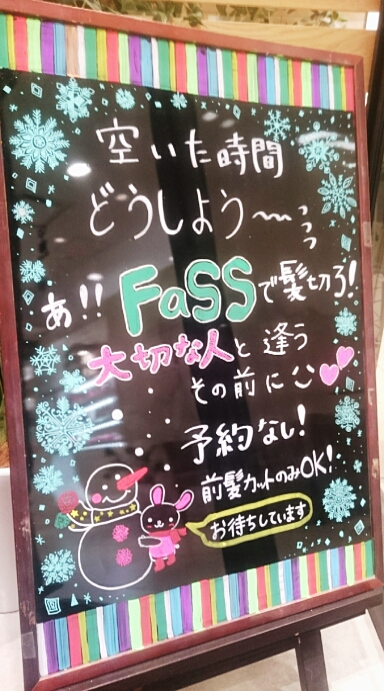 空いた時間
どうしよう〜っっっ
あ!! FaSSで髪切ろ!
大切な人と逢う
その前に
予約なし!
前髪カットのみOK!
お待ちしています